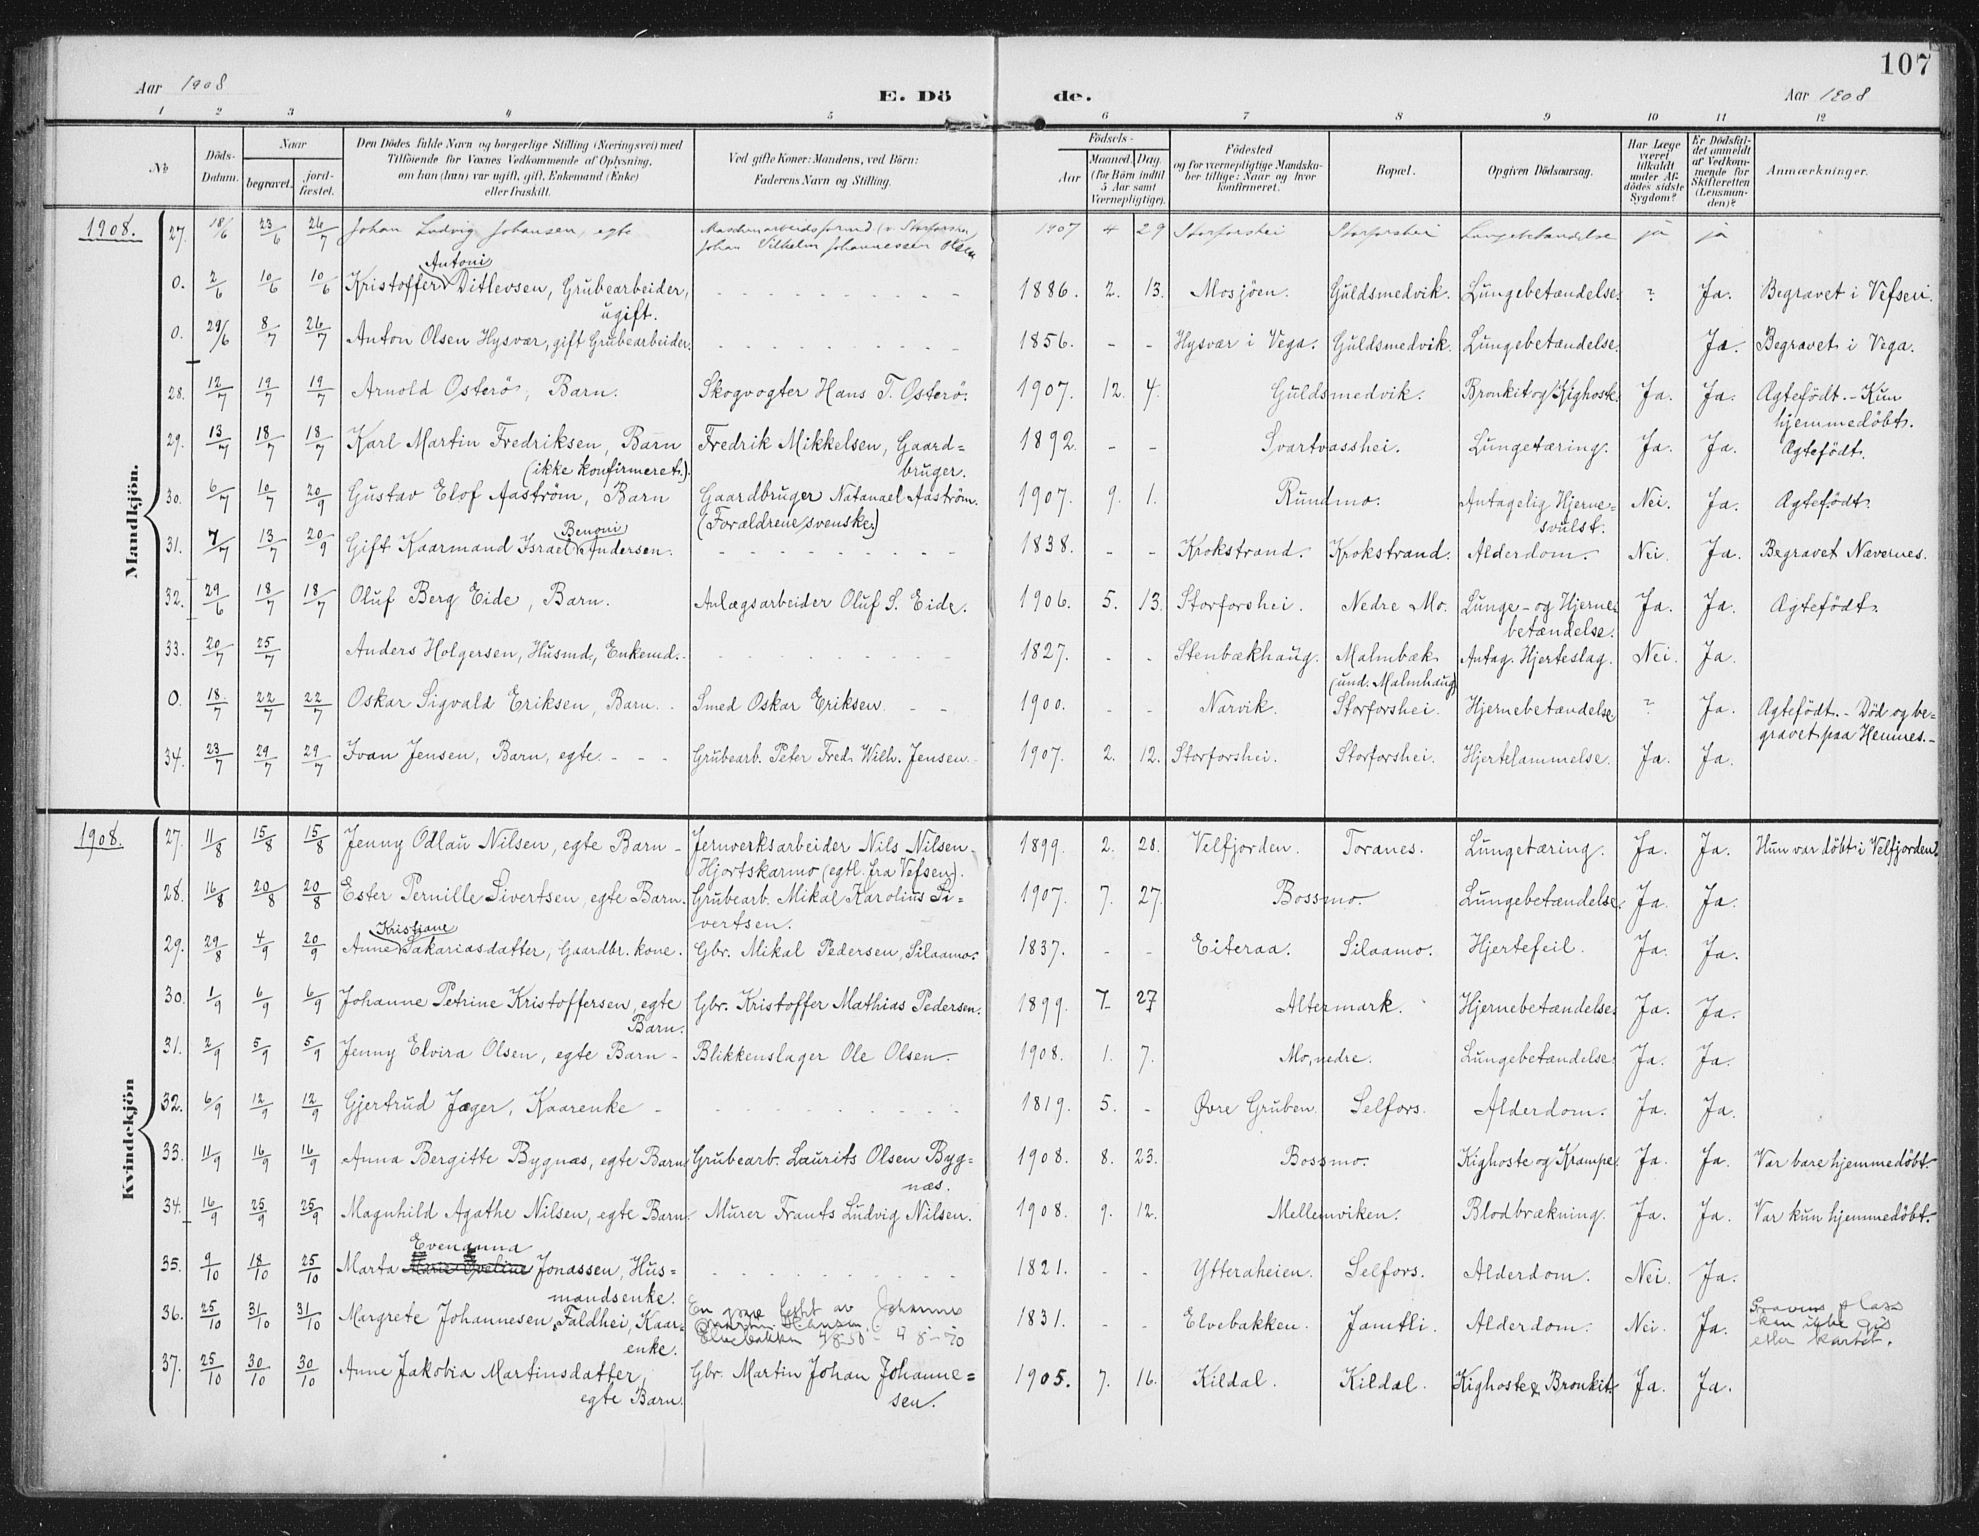 107
Aar 1908 E. Dö de. Aar 1908
1 2 3 4 5 6 7 8 9 10 11 12
No Döds-Datum. Naar begravet. jord-fæstet. Den Dödes fulde Navn og borgerlige Stilling (Næringsvei) med Tilföiende for Voxnes Vedkommende af Oplysning, om han (hun) var ugift, gift, Enkemand (Enke) eller fraskilt. Ved gifte Koner: Mandens, ved Börn: Faderens Navn og Stilling. Födsels- Aar Maaned. Dag. (for Börn indtil 5 Aar samt Værnepligtige). Födested og for værnepligtige Mandskaber tillige: Naar og hvor konfirmeret. Bopæl. Opgiven Dödsaarsag. Har Læge været tilkaldt under Afdödes sidste Sygdom? Er Dödsfaldet anmeldt af Vedkommende for Skifteretten (Lensmanden)? Anmærkninger.
Mandkjön.
1908. 27. 18/6 23/6 26/7 Johan Ludvig Johansen, egte Johan Vilhelm Johannessen Olsen 1907 4 29 Storforshei Storforshei Lungebetændelse ja ja
0. 2/6 10/6 10/6 Kristoffer Antoni Ditlevsen, Grubearbeider, ugift. 1886. 2. 13. Mosjöen. Guldsmedvik. Lungebetændelse. ? Ja. Begravet i Vefsen.
0. 29/6 8/7 26/7 Anton Olsen Hysvær, gift Grubearbeider. 1856. - - Hysvær i Vega. Guldsmedvik. Lungebetændelse. Ja. Begravet i Vega.
28. 12/7 19/7 19/7 Arnold Osterö, Barn. Skogvogter Hans T. Osterö. 1907. 12. 4. Guldsmedvik. Bronkit og Kighoste. Ja. Ja. Ægtefödt. - Kun hjemmedöbt.
29. 13/7 18/7 18/7 Karl Martin Fredriksen, Barn (ikke konfirmeret.) Fredrik Mikkelsen, Gaard=bruger. 1892. - - Svartvasshei. Lungetæring. Ja. Ja. Ægtefödt.
30. 6/7 10/7 20/9 Gustav Elof Aaström, Barn Gaardbruger Natanael Aaström. (Forældrene svenske.) 1907. 9. 1. Rundmo. Antagelig Hjerne=svulst. Nei. Ja. Ægtefödt.
31. 7/7 13/7 20/9 Gift Kaarmand Israel Benoni Andersen. 1838. - - Krokstrand. Krokstrand. Alderdom. Nei. Ja. Begravet Nævernes.
32. 29/6 18/7 18/7 Oluf Berg Eide, Barn. Anlægsarbeider Oluf S. Eide. 1906. 5. 13. Storforshei. Nedre Mo. Lunge- og Hjerne=betændelse. Ja. Ja. Ægtefödt.
33. 20/7 25/7 Anders Holgersen, Husmd., Enkemd. 1827. - - Stenbækhaug. Malmbæk (und. Malmhaug) Antag. Hjerteslag. Nei. Ja.
0. 18/7 22/7 22/7 Oskar Sigvald Eriksen, Barn. Smed Oskar Eriksen. 1900. - - Narvik. Storforshei. Hjernebetændelse ? Ja. Ægtefödt. - Död og be=gravet paa Hemnes.
34. 23/7 29/7 29/7 Ivan Jensen, Barn, egte. Grubearb. Peter Fred. Wilh. Jensen. 1907. 2. 12. Storforshei. Storforshei. Hjertelammelse. Ja. Ja.
Kvindekjön
1908. 27. 11/8 15/8 15/8 Jenny Odlau Nilsen, egte Barn - Jernverksarbeider Nils Nilsen Hjortskarmo (egtl. fra Vefsen). 1899. 2. 28. Velfjorden. Toranes. Lungetæring. Ja. Ja. Hun var döbt i Velfjorden.
28. 16/8 20/8 20/8 Ester Pernille Sivertsen, egte Barn. Grubearb. Mikal Karolius Si=vertsen. 1907. 7. 27. Bossmo. Lungebetændelse. Ja. Ja.
29. 29/8 4/9 20/9 Anne Kristiane Sakariasdatter, Gaardbr. kone. Gbr. Mikal Pedersen, Silaamo. 1837. - - Eiteraa. Silaamo. Hjertefeil. Ja. Ja.
30. 1/9 6/9 6/9 Johanne Petrine Kristoffersen, egte Barn. Gbr. Kristoffer Mathias Pedersen. 1899. 7. 27 Altermark. Hjernebetændelse. Ja. Ja.
31. 2/9 5/9 5/9 Jenny Elvira Olsen, egte Barn - Blikkenslager Ole Olsen. 1908. 1. 7. Mo, nedre. Lungebetændelse. Ja. Ja.
32. 6/9 12/9 12/9 Gjertrud Jæger, Kaarenke 1819. 5. - Øvre Gruben. Selfors. Alderdom. Ja. Ja.
33. 11/9 16/9 16/9 Anna Bergitte Bygnæs, egte Barn Grubearb. Laurits Olsen Byg=næs. 1908. 8. 23. Bossmo. Kighoste og Krampe. Ja. Ja. Var bare hjemmedöbt.
34. 16/9 25/9 25/9 Magnhild Agathe Nilsen, egte Barn. Murer Frants Ludvig Nilsen. 1908. 9. 12. Mellemviken. Blodbrækning. Ja. Ja. Var kun hjemmedöbt.
35. 9/10 18/10 25/10 Marta Evenanna Jonassen, Hus=mandsenke. 1821. - - Ytteraheien. Selfors. Alderdom. Nei. Ja.
36. 25/10 31/10 31/10 Margrete Johannesen, Faldhei, Kaar=enke. En av Johannes Hansen, Elvebakken 1831. - - Elvebakken. Jamtli. Alderdom. Nei. Ja. Gravens plass kan ikke etter kartet.
37. 25/10 30/10 30/10 Anne Jakobia Martinsdatter, egte Barn. Gbr. Martin Johan Johanne=sen. 1905. 7. 16. Kildal. Kildal. Kighoste & Bronkit. Ja. Ja.